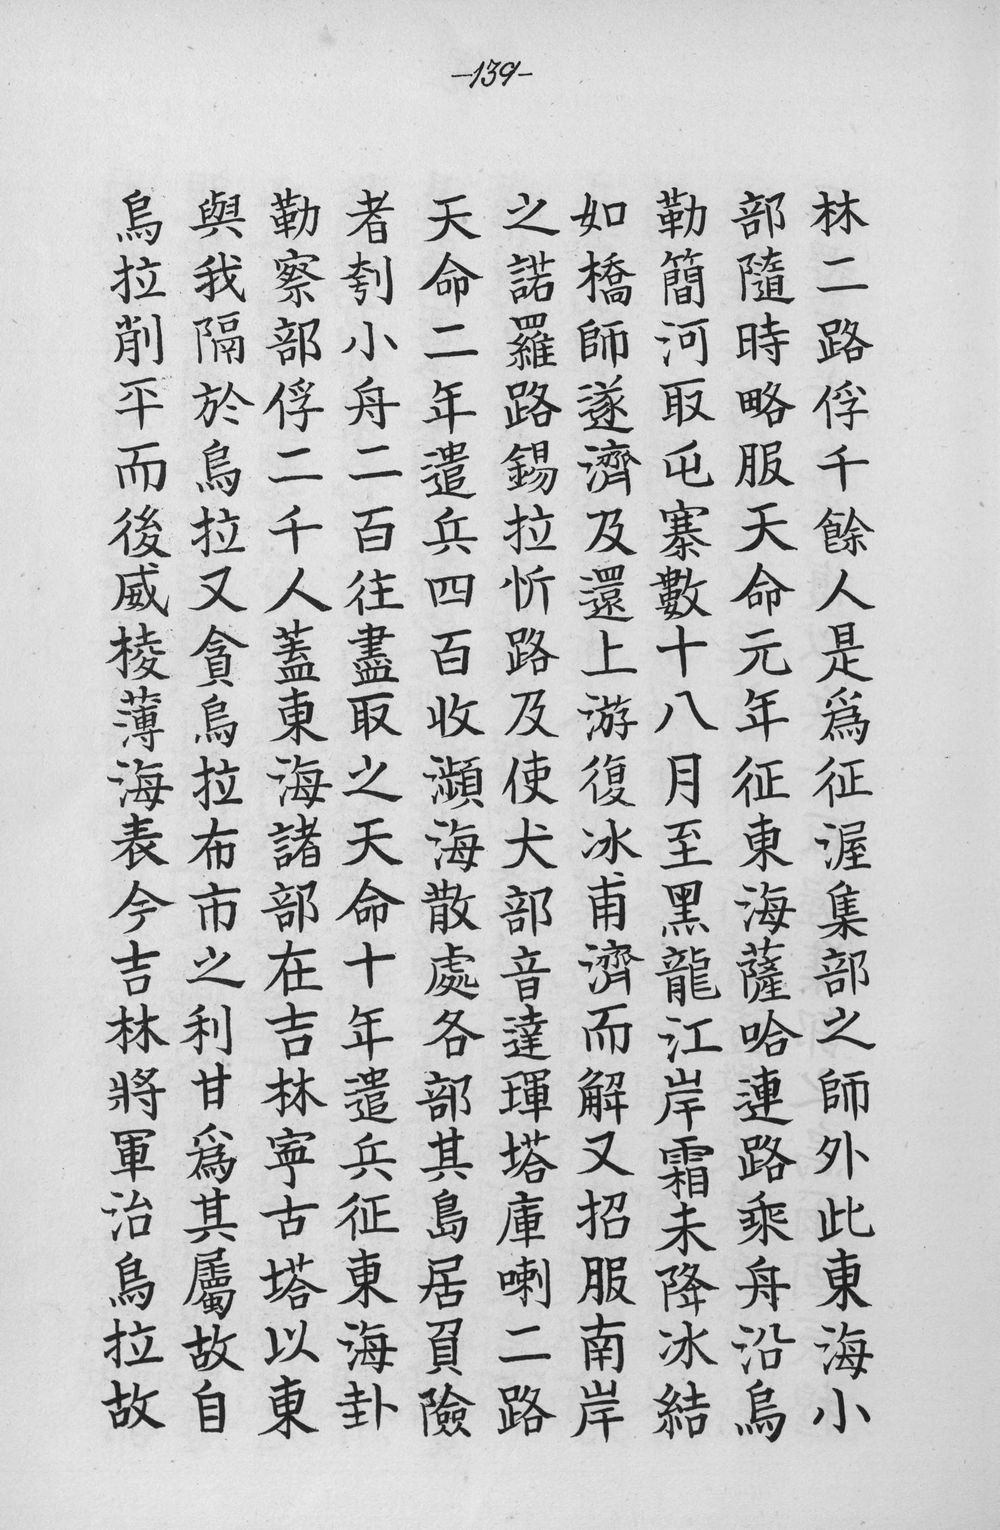 -139-
林二路俘千餘人是爲征渥集部之師外此東海小
部隨時略服天命元年征東海薩哈連路乘舟沿烏
勒簡河取屯寨數十八月至黑龍江岸霜未降冰結
如橋師遂濟及還上游復冰甫濟而解又招服南岸
之諾羅路錫拉忻路及使犬部音達琿塔庫喇二路
天命二年遣兵四百收瀕海散處各部其島居負險
者刳小舟二百往盡取之天命十年遣兵征東海卦
勒察部俘二千人蓋東海諸部在吉林寧古塔以東
與我隔於烏拉又貪烏拉布市之利甘爲其屬故自
烏拉削平而後威棱薄海表今吉林將軍治烏拉故